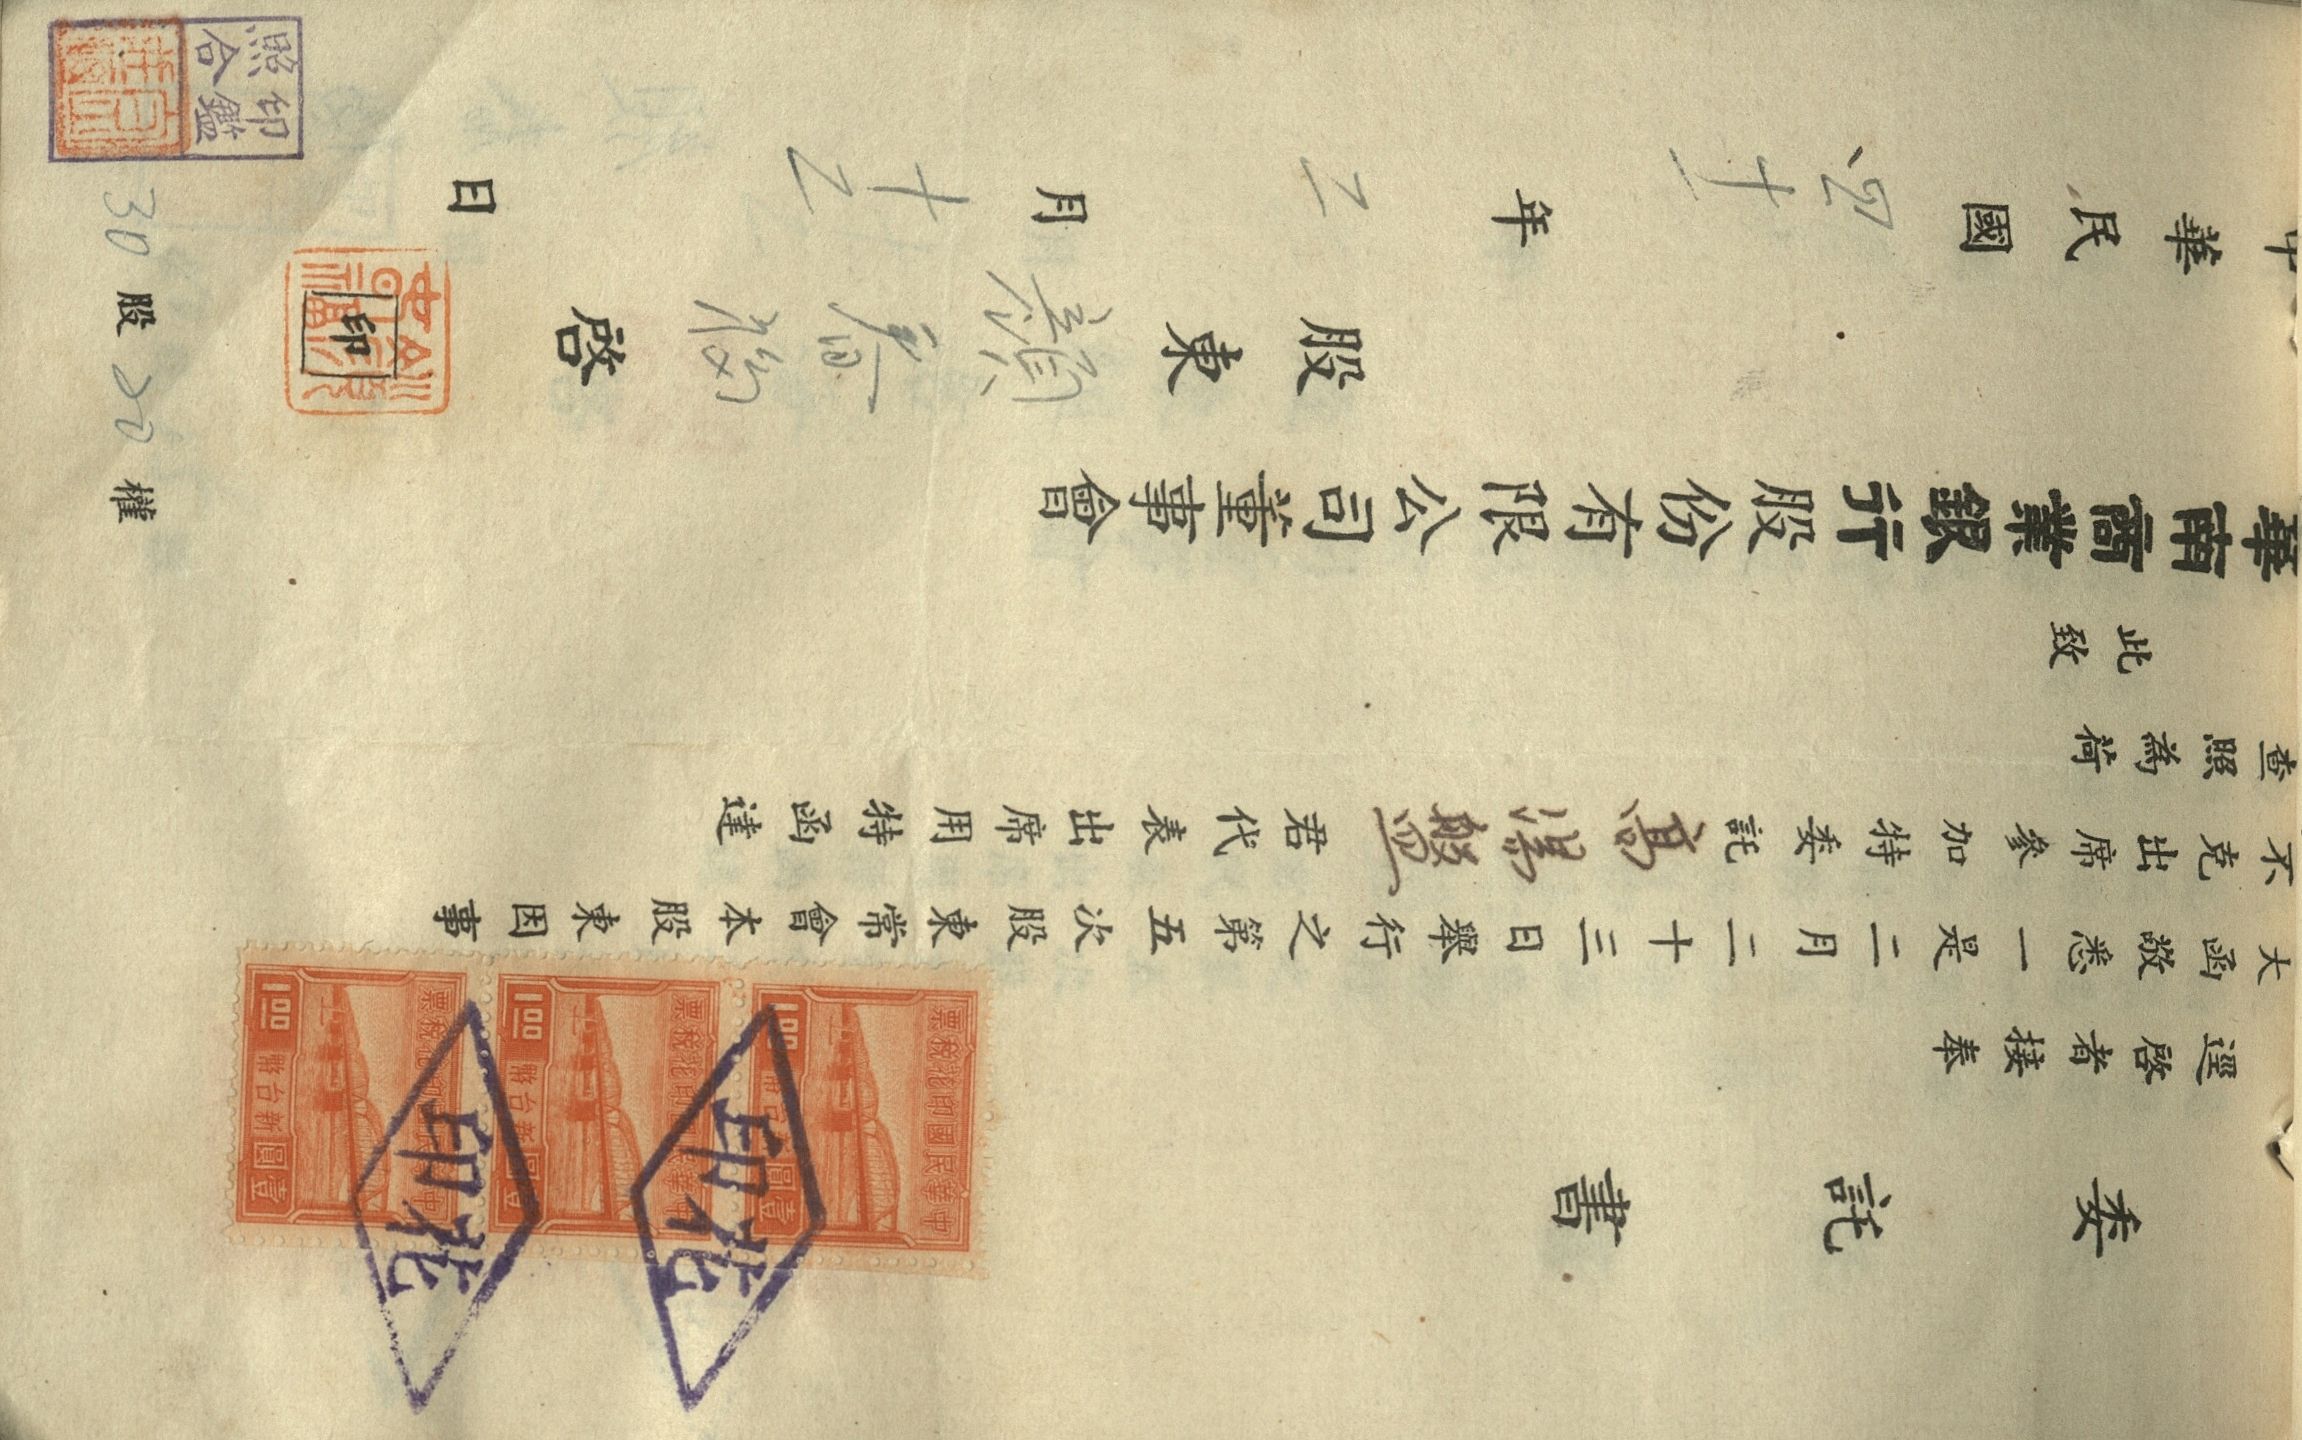 委託書
逕啓者接奉
大函敬悉一是二月二十三日舉行之第五次股東常會本股東因事
不克出席參加特委託高湯盤君代表出席用特函達
查照為荷
此致
華南商業銀行股份有限公司董事會
股東 顏春福 啓
印
中華民國四十一年二月十二日
30股 權
印鑑
照合
中華民國印花稅票
壹圓 新台幣 1.00
中華民國印花稅票
壹圓 新台幣 1.00
中華民國印花稅票
壹圓 新台幣 1.00
印花
印花